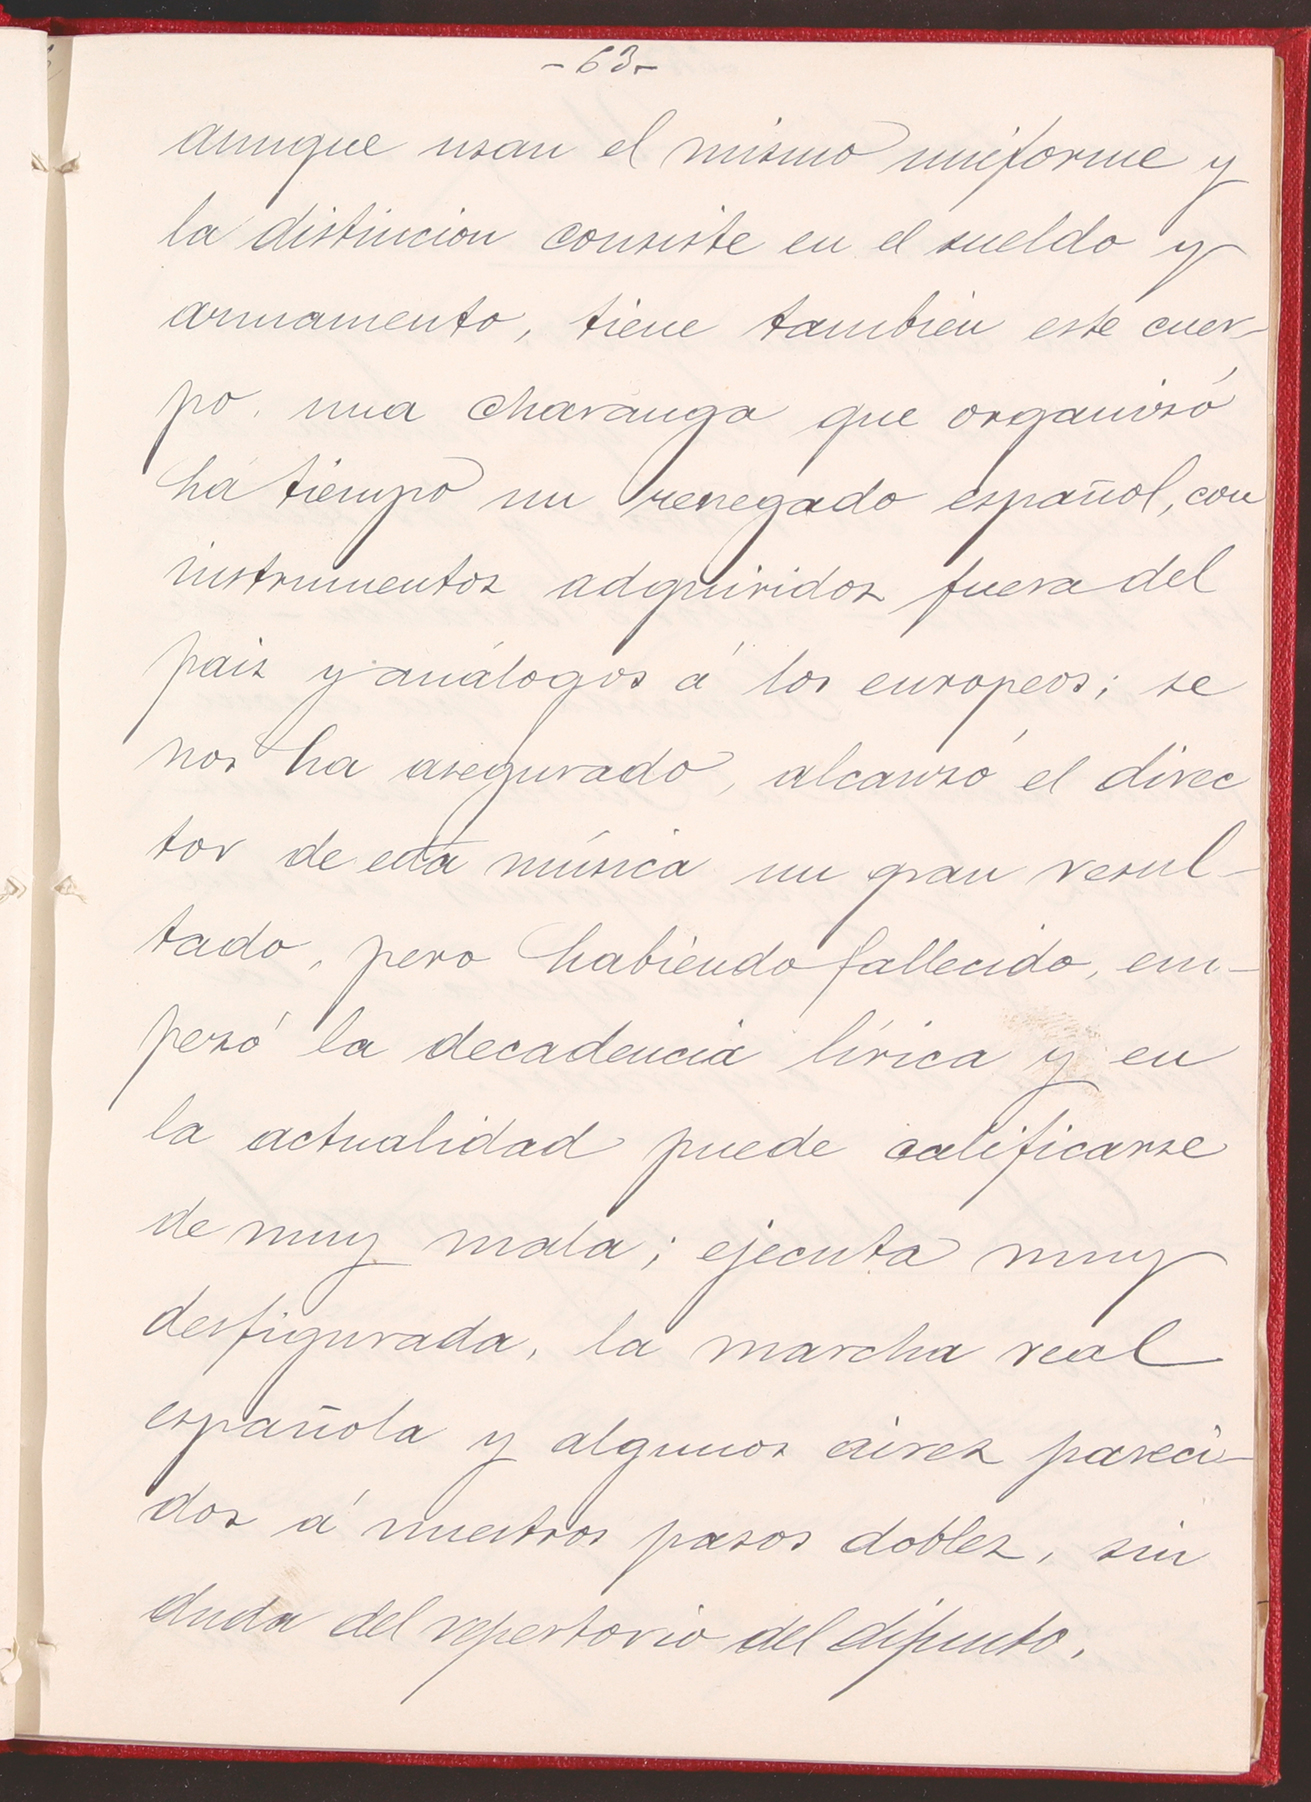 -63-
aunque usan el mismo uniforme y
la distincion consiste en el sueldo y
armamento, tiene tambien este cuer-
po, una charanga que organizó
há tiempo un renegado español, con
instrumentos adquiridos fuera del
pais y análogos á los europeos; se
nos ha asegurado, alcanzó el direc
tor de esta música un gran resul-
tado, pero habiendo fallecido, em-
pezó la decadencia lírica y en
la actualidad puede calificarse
de muy mala; ejecuta muy
desfigurada, la marcha real
española y algunos aires pareci-
dos á nuestros pasos dobles, sin
duda del repertorio del difunto.